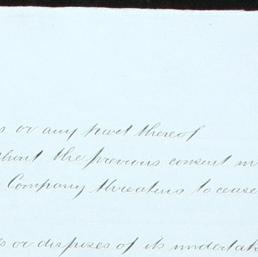 s or any part thereof
thout the previous consent in
Company threatens to cease
s or disposes of its undertak